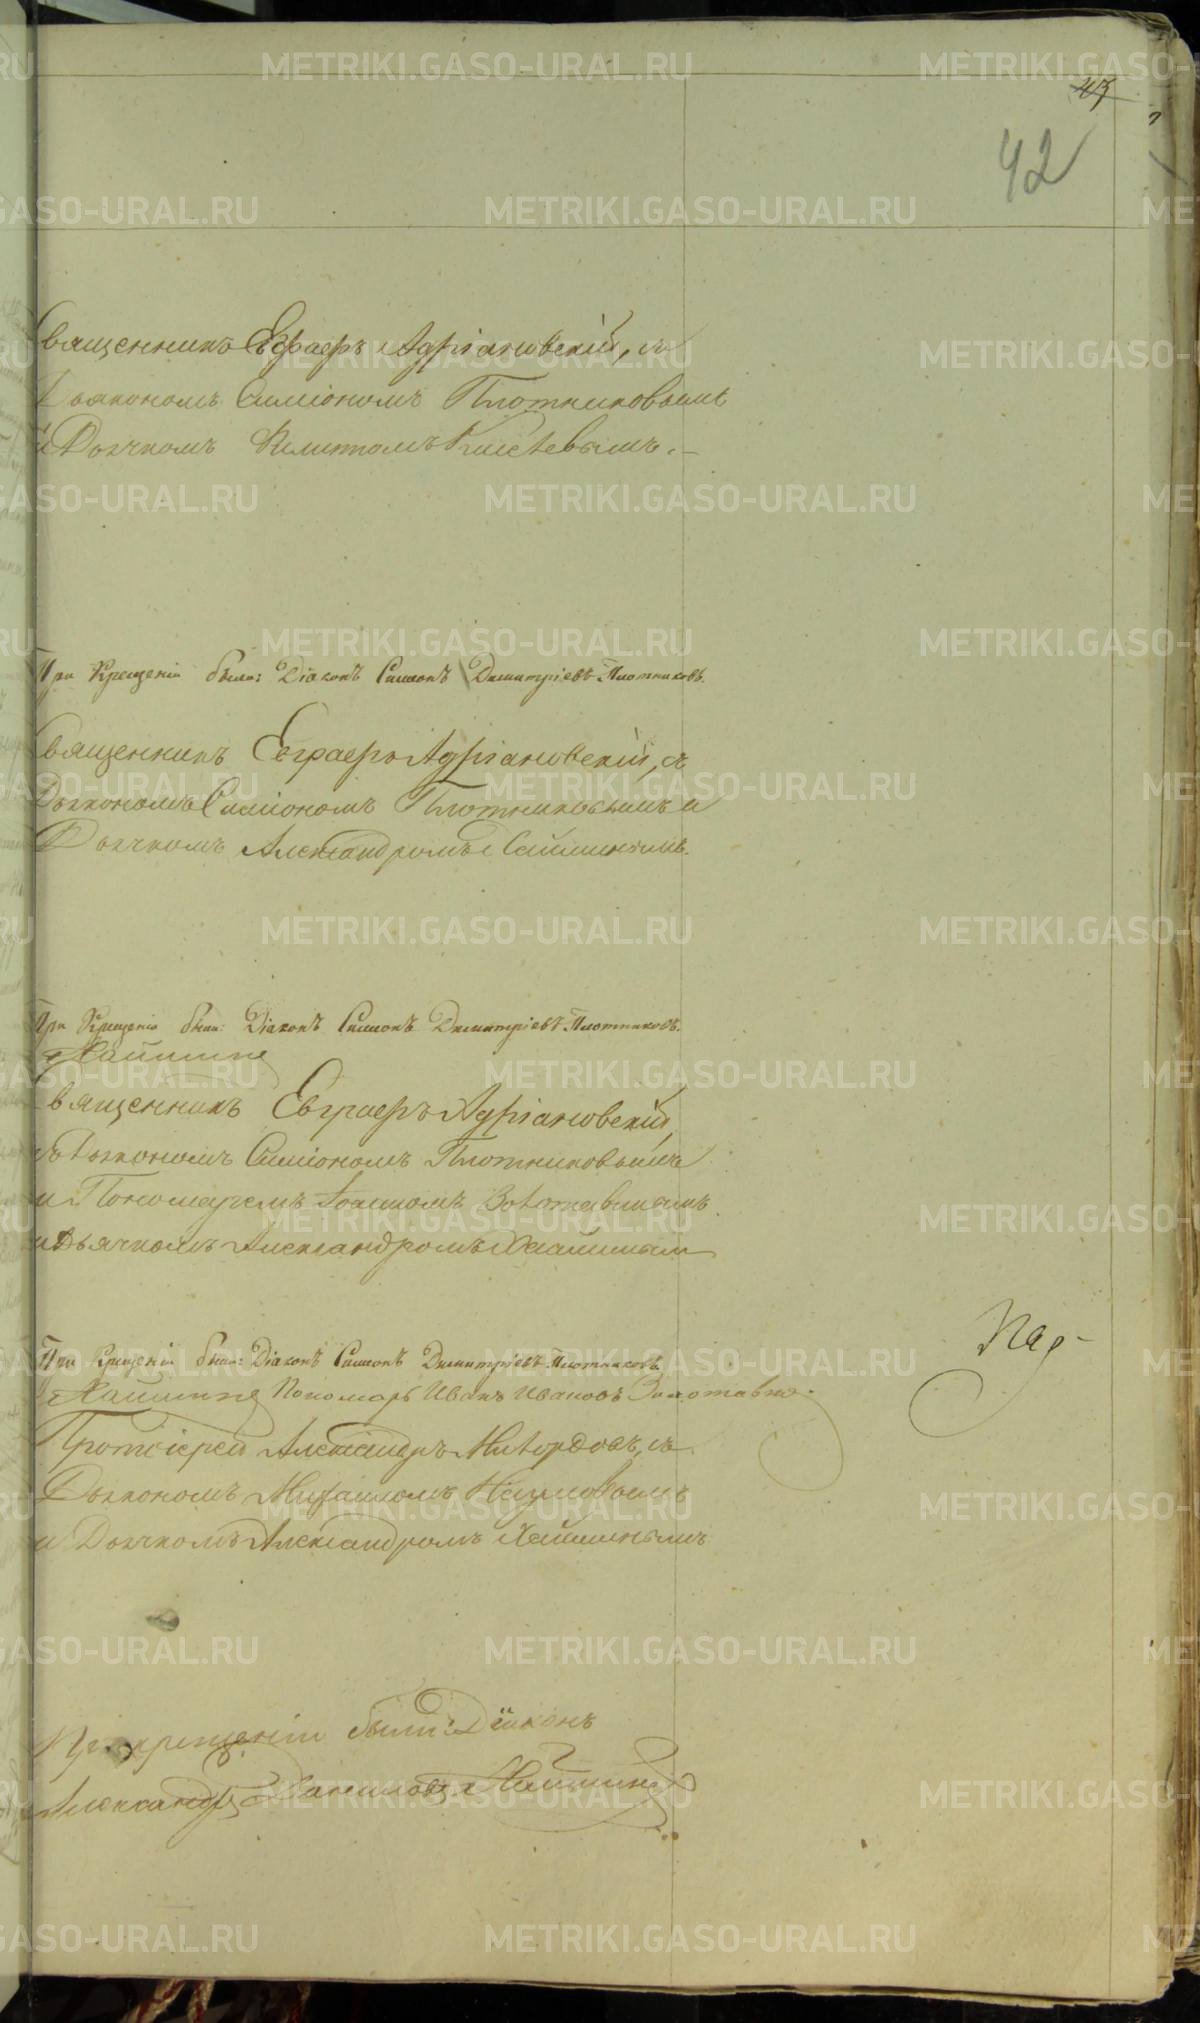 43
42
Священникъ Евграфъ Адріановскій, съ
Дьякономъ Симіономъ Плотниковымъ
и Дьячкомъ
При Крещеніи были: Діаконъ Симионъ Димитріевъ Плотниковъ.
Священникъ Евграфъ Адріановскій, съ
Дьякономъ Симіономъ Плотниковымъ и
Дьячкомъ Александромъ Хайминымъ.
При Крещеніи были: Діаконъ Симионъ Димитріевъ Плотниковъ.
Хайминъ
Священникъ Евграфъ Адріановскій,
съ Дьякономъ Симіономъ Плотниковымъ
и Пономаремъ Іоанномъ Золотавинымъ
и Дьячкомъ Александромъ Хайминым
При Крещеніи были: Діаконъ Симионъ Димитріевъ Плотниковъ
Хайминъ Пономарь Иванъ Ивановъ Золотавин
Протоіерей Александръ съ
Дьякономъ Михаиломъ Наумовымъ
и Дьячкомъ Александромъ Хайминымъ
При крещеніи были: Діаконъ
Александръ Даниловъ Хайминъ
METRIKI.GASO-URAL.RU